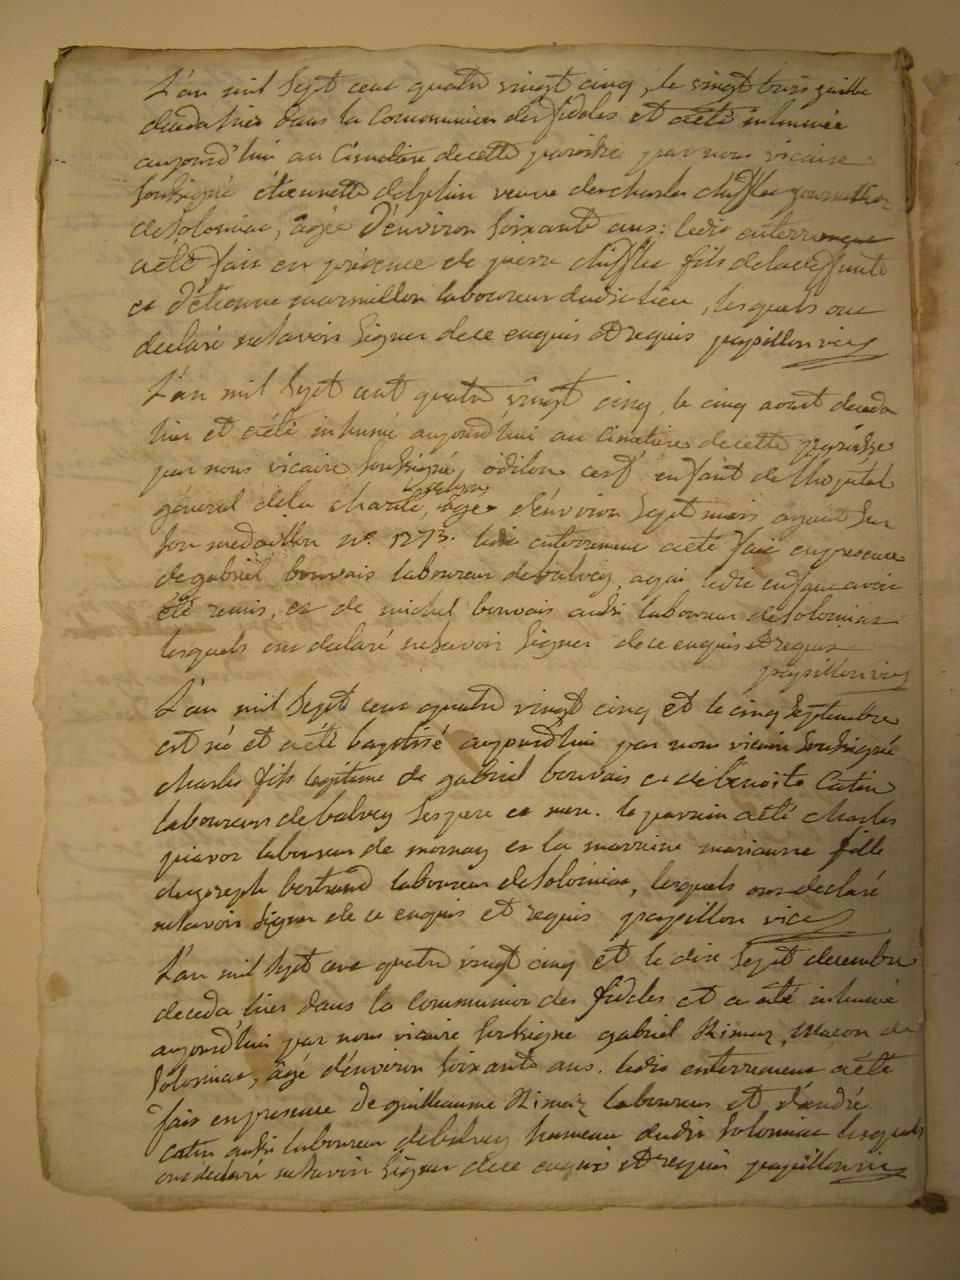 L'an mil sept cent quatre vingt cinq, le vingt trois juillet
deceda hier dans la Communion des fideles et a été inhumée
aujourd'hui au Cimetiere de cette paroisse par nous vicaire
soussigné étiennette delphin veuve de charles chifflet journallier
de Solomiac, âgée d'environ soixante ans: ledit enterrement
a été fait en présence de pierre chifflet fils de la deffunte
et d'étienne marmillon laboureur dudit lieu, lesquels ont
declaré ne savoir signer de ce enquis et requis papillon vic
L'an mil sept cent quatre vingt cinq, le cinq aout deceda
hier et a été inhumé aujourd'hui au Cimetiere de cette paroisse
par nous vicaire soussigné, odilon cerf enfant de l'hopital
général de la charité de lyon, âgé d'environ sept mois ayant sur
son medaillon n°. 1273. ledit enterrement a été fait en presence
de gabriel bouvais laboureur de balvey, a qui ledit enfant avoit
été remis, et de michel bouvais aussi laboureur de Solomiac
lesquels ont declaré ne savoir signer de ce enquis et requis
papillon vic
L'an mil sept cent quatre vingt cinq et le cinq septembre
est né et a été baptisé aujourd'hui par nous vicaire soussigné
charles fils legitime de gabriel bouvais et de benoite Catin
laboureurs de balvey ses pere et mere. le parrain a été charles
piavoz laboureur de mornay et la marraine marianne fille
de joseph bertrand laboureur de Solomiac, lesquels ont declaré
ne savoir signer de ce enquis et requis papillon vic
L'an mil sept cent quatre vingt cinq et le dix sept decembre
deceda hier dans la Communion des fideles et a été inhumé
aujourd'hui par nous vicaire soussigné gabriel Rimaz, Maçon de
Solomiac, âgé d'environ soixante ans. ledit enterrement a été
fait en presence de guilleaume Rimaz laboureur et d'andré
catin aussi laboureur de balvey hameau dudit Solomiac lesquels
ont declaré ne savoir signer de ce enquis et requis papillon vic